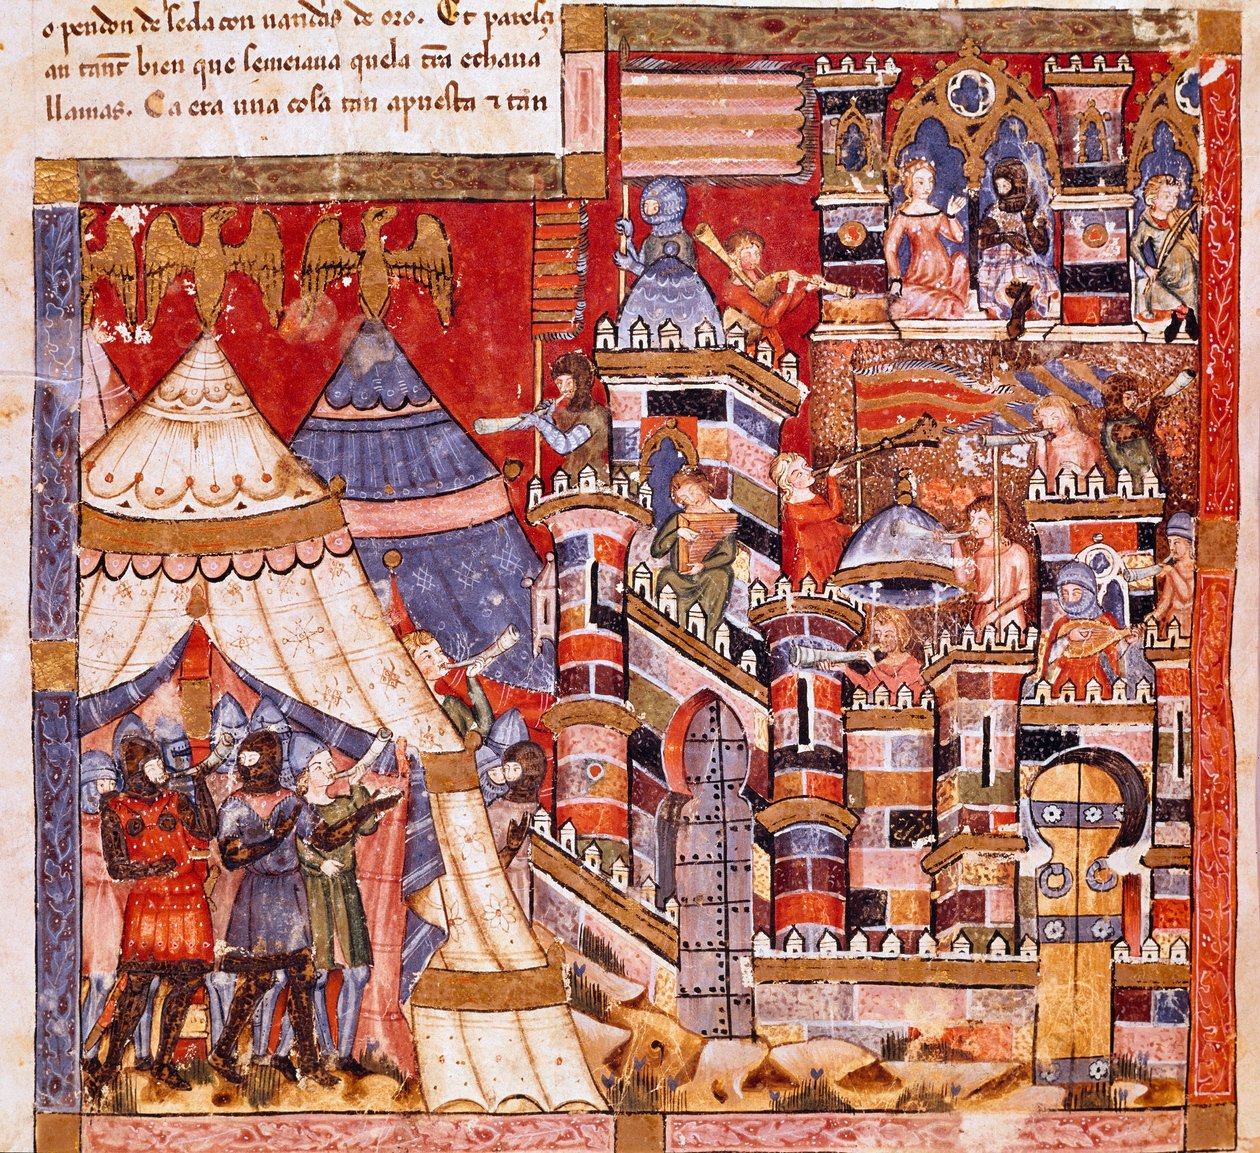 o pendon de seda con uandas de oro. Et paresçi
an tant bien que semeiaua quela tra echaua
llamas. Ca era una cosa tan apuesta ⁊ tan